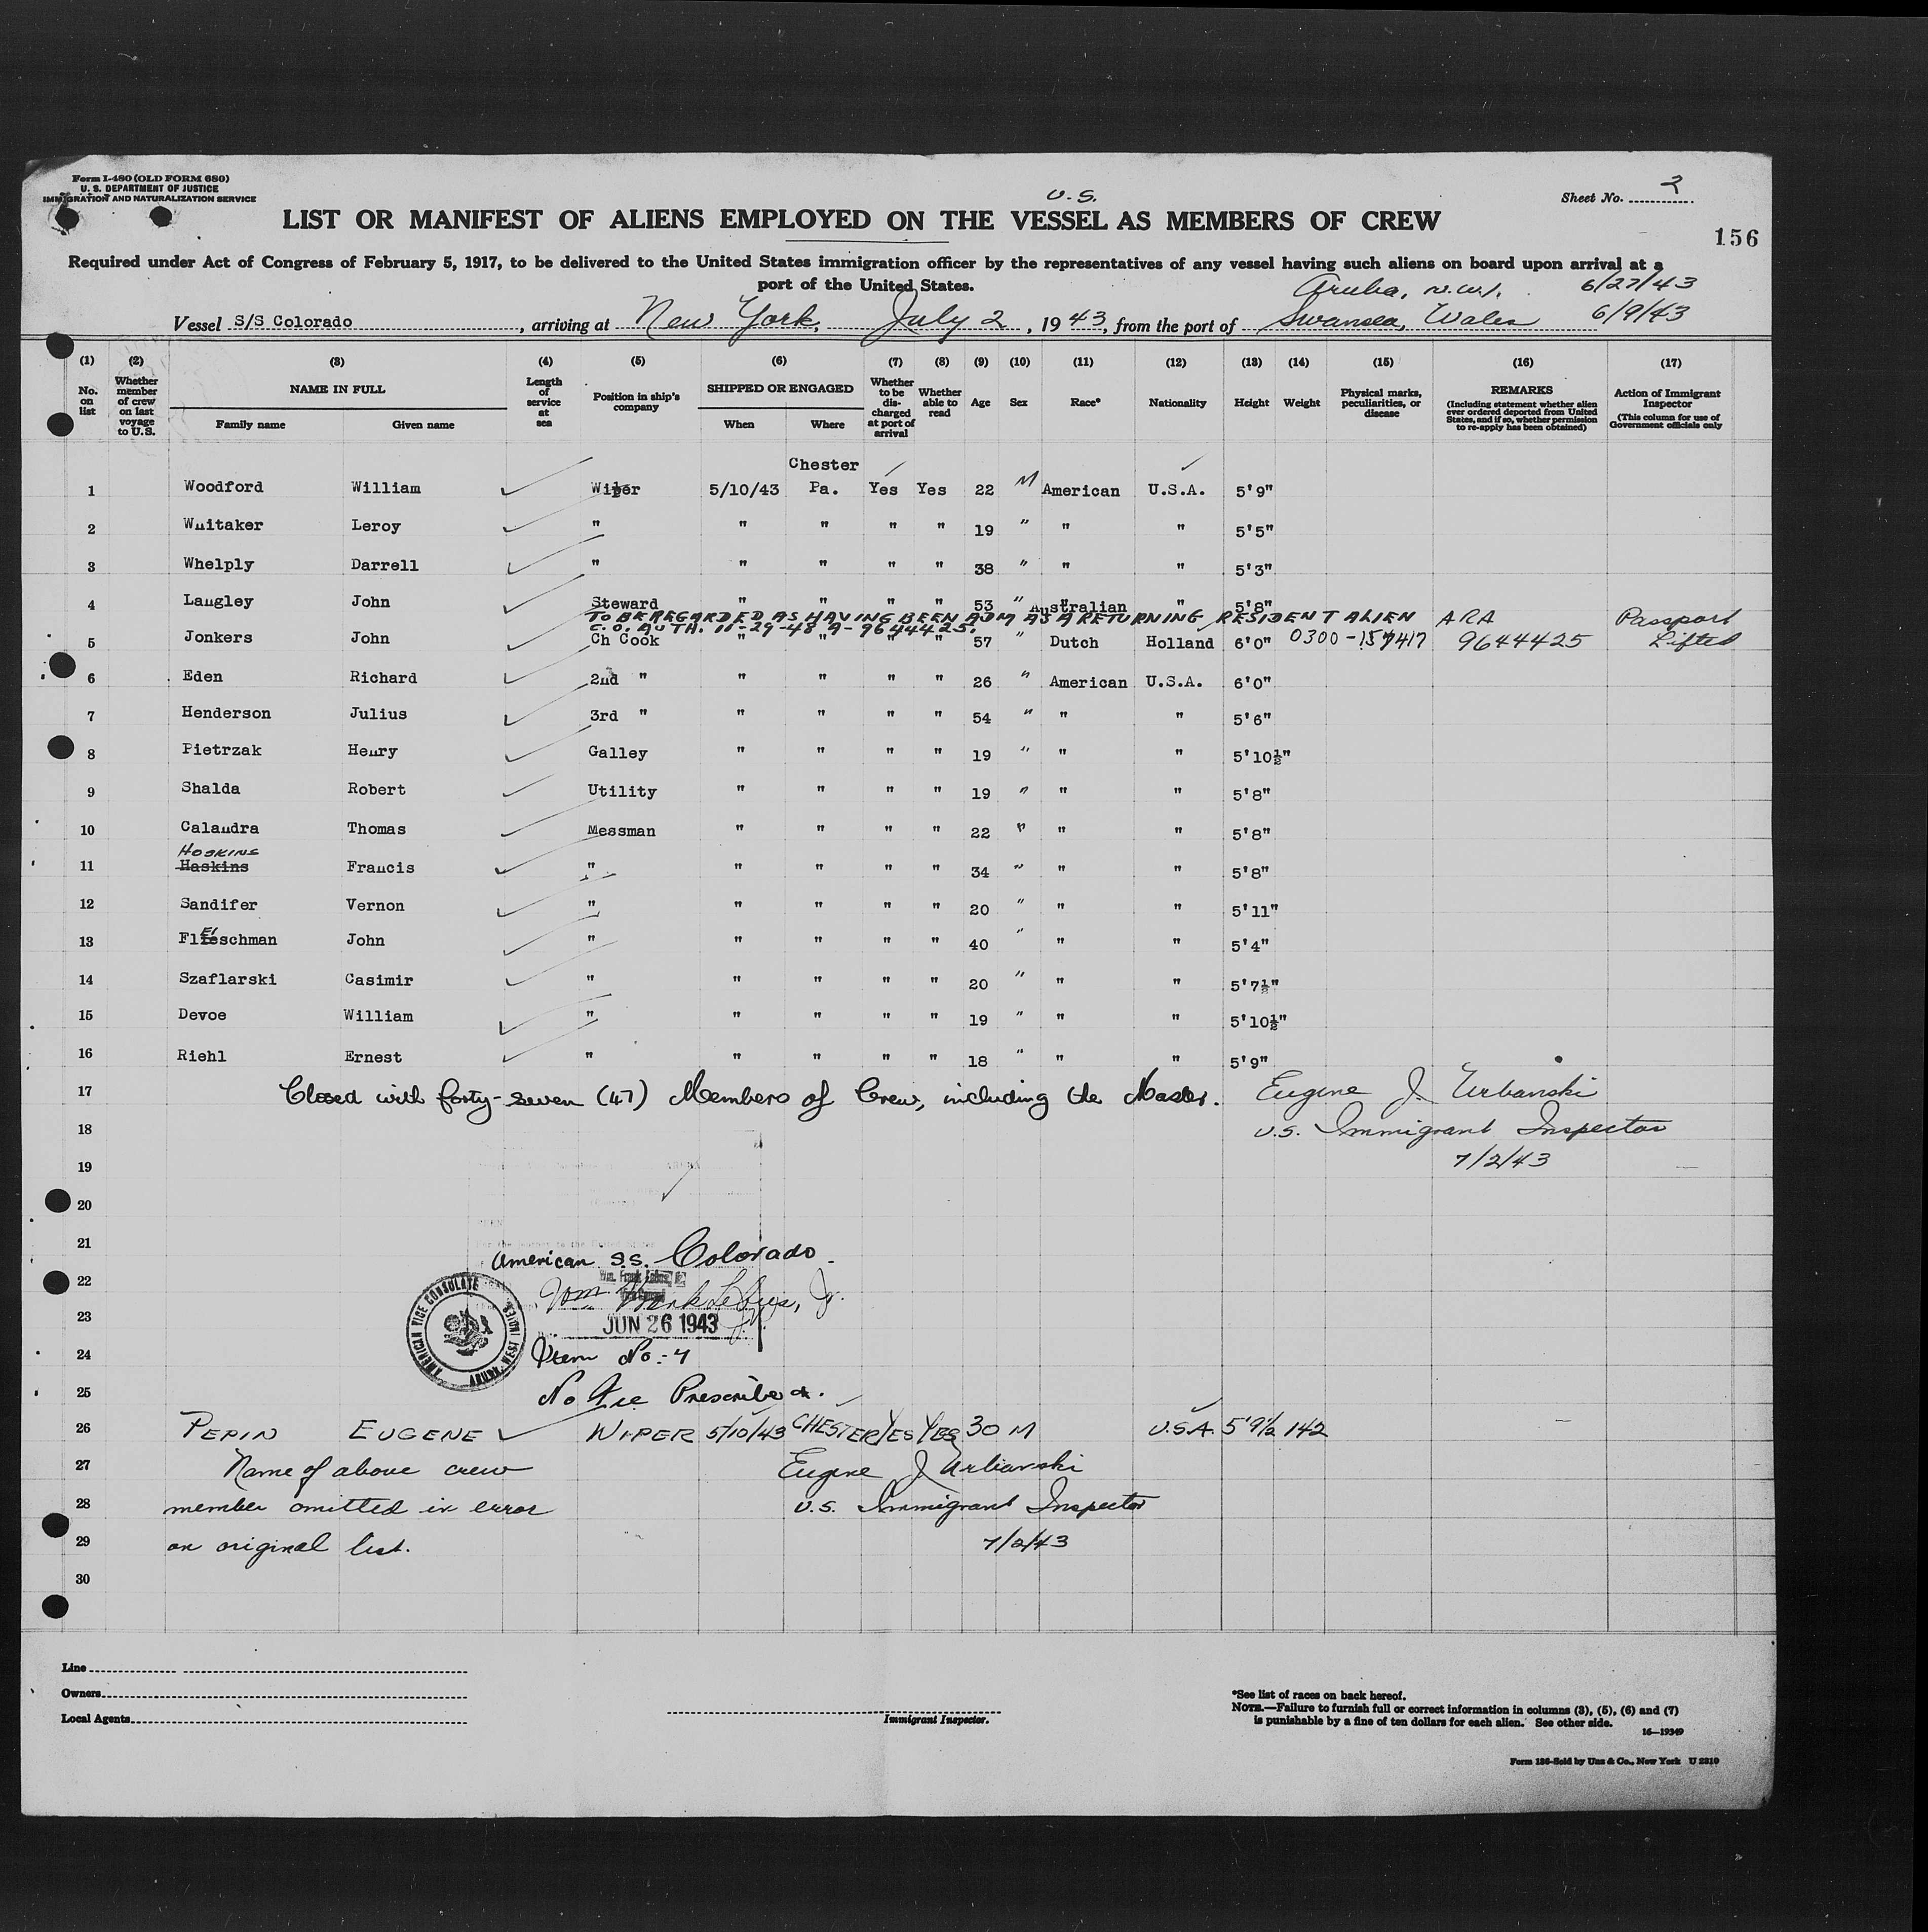 Form I-480 (OLD FORM 680)
U. S. DEPARTMENT OF JUSTICE
IMMIGRATION AND NATURALIZATION SERVICE
Sheet No. 2
U.S.
LIST OR MANIFEST OF ALIENS EMPLOYED ON THE VESSEL AS MEMBERS OF CREW
156
Required under Act of Congress of February 5, 1917, to be delivered to the United States immigration officer by the representatives of any vessel having such aliens on board upon arrival at a
port of the United States.
Aruba, N.W.I. 6/27/43
Vessel S/S Colorado, arriving at New York, July 2, 1943, from the port of Swansea, Wales 6/9/43
(1) (2) (3) (4) (5) (6) (7) (8) (9) (10) (11) (12) (13) (14) (15) (16) (17)
No. on list
Whether member of crew on last voyage to U.S.
NAME IN FULL
Family name Given name
Length of service at sea
Position in ship's company
SHIPPED OR ENGAGED
When Where
Whether to be discharged at port of arrival
Whether able to read
Age Sex Race* Nationality Height Weight
Physical marks, peculiarities, or disease
REMARKS
(Including statement whether alien ever ordered deported from United States, and if so, whether permission to re-apply has been obtained)
Action of Immigrant Inspector
(This column for use of Government officials only
Chester
1 Woodford William Wiper 5/10/43 Pa. Yes Yes 22 M American U.S.A. 5'9"
2 Whitaker Leroy " " " " " 19 " " " 5'5"
3 Whelply Darrell " " " " " 38 " " " 5'3"
4 Langley John Steward " " " " 53 " Australian " 5'8"
TO BE REGARDED AS HAVING BEEN ADM AS A RETURNING RESIDENT ALIEN ARA Passport
C.O. AUTH. 11-29-48 A-9644425.
5 Jonkers John Ch Cook " " " " 57 " Dutch Holland 6'0" 0300-157417 9644425 Lifted
6 Eden Richard 2nd " " " " " 26 " American U.S.A. 6'0"
7 Henderson Julius 3rd " " " " " 54 " " " 5'6"
8 Pietrzak Henry Galley " " " " 19 " " " 5'10½"
9 Shalda Robert Utility " " " " 19 " " " 5'8"
10 Calandra Thomas Messman " " " " 22 " " " 5'8"
HOSKINS
11 Haskins Francis " " " " " 34 " " " 5'8"
12 Sandifer Vernon " " " " " 20 " " " 5'11"
EI
13 Flieschman John " " " " " 40 " " " 5'4"
14 Szaflarski Casimir " " " " " 20 " " " 5'7½"
15 Devoe William " " " " " 19 " " " 5'10½"
16 Riehl Ernest " " " " " 18 " " " 5'9"
17 Closed with forty-seven (47) Members of Crew, including the Master. Eugene J. Urbanski
18 U.S. Immigrant Inspector
19 7/2/43
20
21 American S.S. Colorado.
22 Wm. Frank Lebus, Jr.
23 JUN 26 1943
AMERICAN VICE CONSULATE
24 Item No. 4
25 No Fee Prescribed.
26 PEPIN EUGENE WIPER 5/10/43 CHESTER YES YES 30 M U.S.A. 5'9½ 142
27 Name of above crew Eugene J Urbanski
28 member omitted in error U.S. Immigrant Inspector
29 on original list. 7/2/43
30
Line
Owners
Local Agents
Immigrant Inspector.
*See list of races on back hereof.
NOTE.—Failure to furnish full or correct information in columns (3), (5), (6) and (7)
is punishable by a fine of ten dollars for each alien. See other side.
16—19349
Form 136-Sold by Unz & Co., New York U 2310